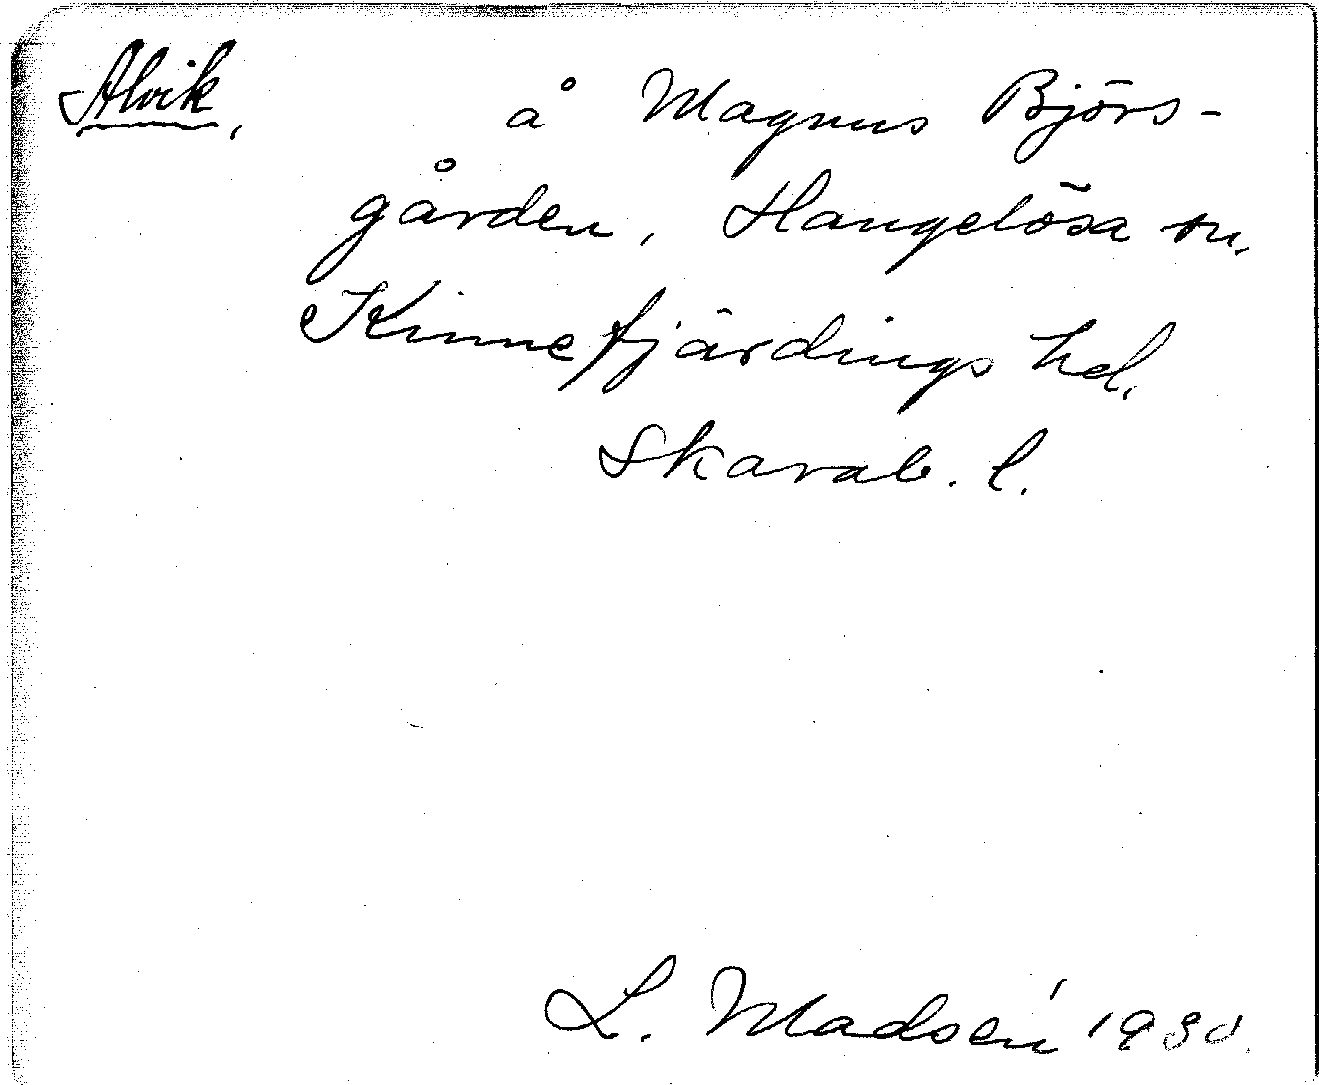 Alvik, å Magnus Björs-
gården, Hangelösa sn.
Kinnefjärdings hd.
Skarab. l.
L. Madsén 1930.